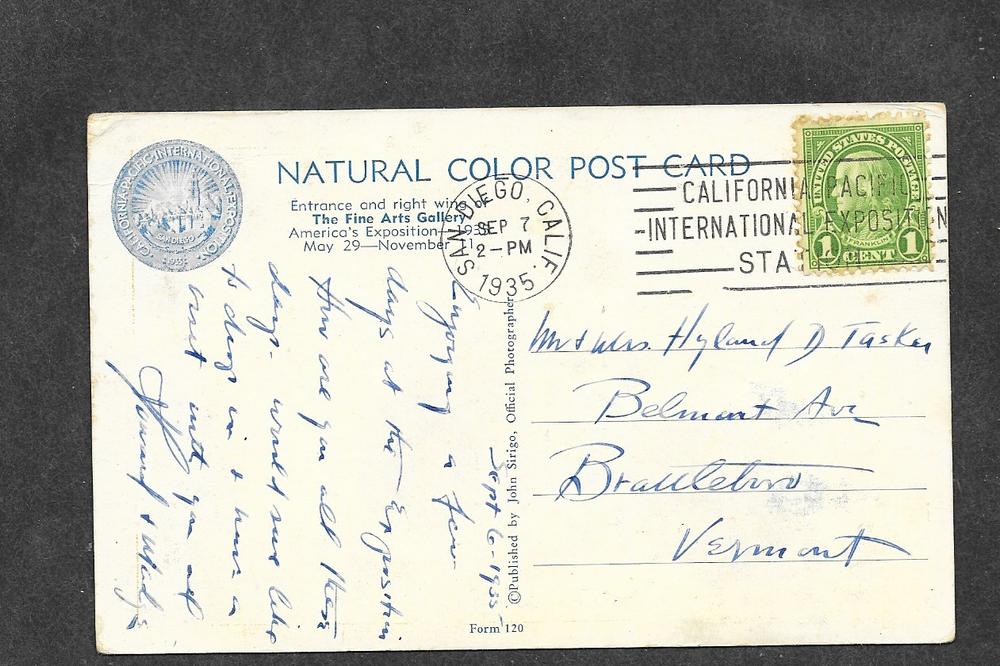 CALIFORNIA-PACIFIC-INTERNATIONAL-EXPOSITION
SAN DIEGO
1935
NATURAL COLOR POST CARD
Entrance and right wing of
The Fine Arts Gallery
America's Exposition—1935
May 29—November 11
SAN DIEGO, CALIF.
SEP 7
2-PM
1935
CALIFORNIA PACIFIC
INTERNATIONAL EXPOSITION
STA
UNITED STATES POSTAGE
FRANKLIN
1 CENT 1
Sept 6-1935
Enjoying a few
days at the Exposition
How are you all these
days. would sure like
to drop in & have a
visit with you all
Mr & Mrs. Hyland D Tasker
Belmont Ave
Brattleboro
Vermont
©Published by John Sirigo, Official Photographer
Form 120